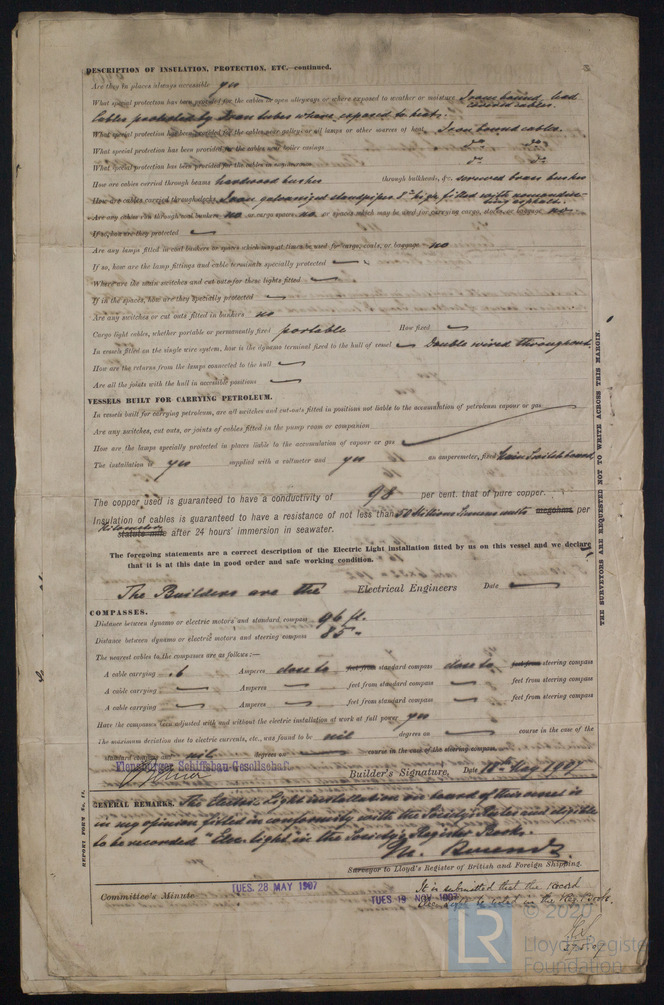 DESCRIPTION OF INSULATION, PROTECTION, ETC.—continued.
Are they in places always accessible yes
What special protection has been provided for the cables in open alleyways or where exposed to weather or moisture Iron bound lead covered cables.
Cables protected by Iron tubes where exposed to heat.
What special protection has been provided for the cables near galleys or oil lamps or other sources of heat Iron bound cables.
What special protection has been provided for the cables near boiler casings do do
What special protection has been provided for the cables in engine room do do
How are cables carried through beams hardwood bushes through bulkheads, &c. screwed brass bushes
How are cables carried through decks Iron galvanized standpipes high filled with asphalt.
Are any cables run through coal bunkers no or cargo spaces no or spaces which may be used for carrying cargo, stores, or baggage no
If so, how are they protected
Are any lamps fitted in coal bunkers or spaces which may at times be used for cargo, coals, or baggage no
If so, how are the lamp fittings and cable terminals specially protected
Where are the main switches and cut outs for these lights fitted
If in the spaces, how are they specially protected
Are any switches or cut outs fitted in bunkers no
Cargo light cables, whether portable or permanently fixed portable How fixed
In vessels fitted on the single wire system, how is the dynamo terminal fixed to the hull of vessel Double wired throughout
How are the returns from the lamps connected to the hull
Are all the joints with the hull in accessible positions
VESSELS BUILT FOR CARRYING PETROLEUM.
In vessels built for carrying petroleum, are all switches and cut-outs fitted in positions not liable to the accumulation of petroleum vapour or gas
Are any switches, cut outs, or joints of cables fitted in the pump room or companion
How are the lamps specially protected in places liable to the accumulation of vapour or gas
The installation is yes supplied with a voltmeter and yes an amperemeter, fixed Main Switchboard
The copper used is guaranteed to have a conductivity of 98 per cent. that of pure copper.
Insulation of cables is guaranteed to have a resistance of not less than 50 Millions Siemens units megohms per
Kilometer
statute mile after 24 hours' immersion in seawater.
The foregoing statements are a correct description of the Electric Light installation fitted by us on this vessel and we declare
that it is at this date in good order and safe working condition.
The Builders are the Electrical Engineers Date
COMPASSES.
Distance between dynamo or electric motors and standard compass 96 ft.
Distance between dynamo or electric motors and steering compass 85 "
The nearest cables to the compasses are as follows:—
A cable carrying .6 Amperes close to feet from standard compass close to feet from steering compass
A cable carrying Amperes feet from standard compass feet from steering compass
A cable carrying Amperes feet from standard compass feet from steering compass
Have the compasses been adjusted with and without the electric installation at work at full power yes
The maximum deviation due to electric currents, etc., was found to be nil degrees on course in the case of the
standard compass and nil degrees on course in the case of the steering compass.
Flensburger Schiffsbau-Gesellschaft
Builder's Signature, Date 18th May 1907
GENERAL REMARKS. The Electric Light installation on board of this vessel is
in my opinion fitted in conformity with the Society's Rules and eligible
to be recorded "Elec. light" in the Society's Register Book.
Surveyor to Lloyd's Register of British and Foreign Shipping.
Committee's Minute TUES. 28 MAY 1907
TUES 19 NOV 1907
It is submitted that the Record
Elec. Light be noted in the Reg. Book.
THE SURVEYORS ARE REQUESTED NOT TO WRITE ACROSS THIS MARGIN.
REPORT FORM No. 14.
LR
© 2020
Lloyd's Register
Foundation